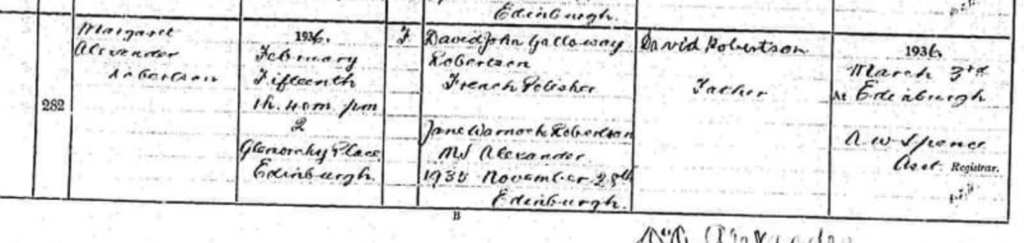 Edinburgh.
Margaret
Alexander
Robertson
282
1936.
February
Fifteenth
1h. 40m. pm
2
Place
Edinburgh.
F
David John Galloway
Robertson
French Polisher
Jane Warnock Robertson
MS Alexander
November 28th
Edinburgh.
David Robertson
Father
1936.
March 3rd
At Edinburgh
Spence
Asst. Registrar.
B